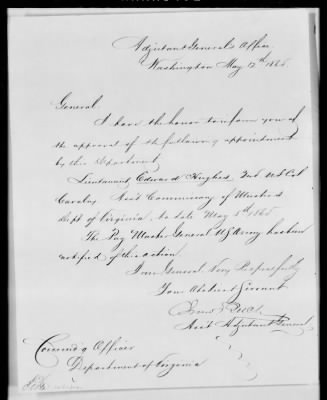 Adjutant General's Office
Washington May 12th 1865.
General
I have the honor to inform you of
the approval of the following appointment
by this Department
Lieutenant Edward Hughes, 2nd U.S. Col
Cavalry Ass't Commissary of Musters
Dept of Virginia, to date May 5th 1865
The Pay Master General US Army has been
notified of this action.
I am General Very Respectfully
Your Obedient Servant
Ass't Adjutant General
Comm'd'g Officer
Department of Virginia